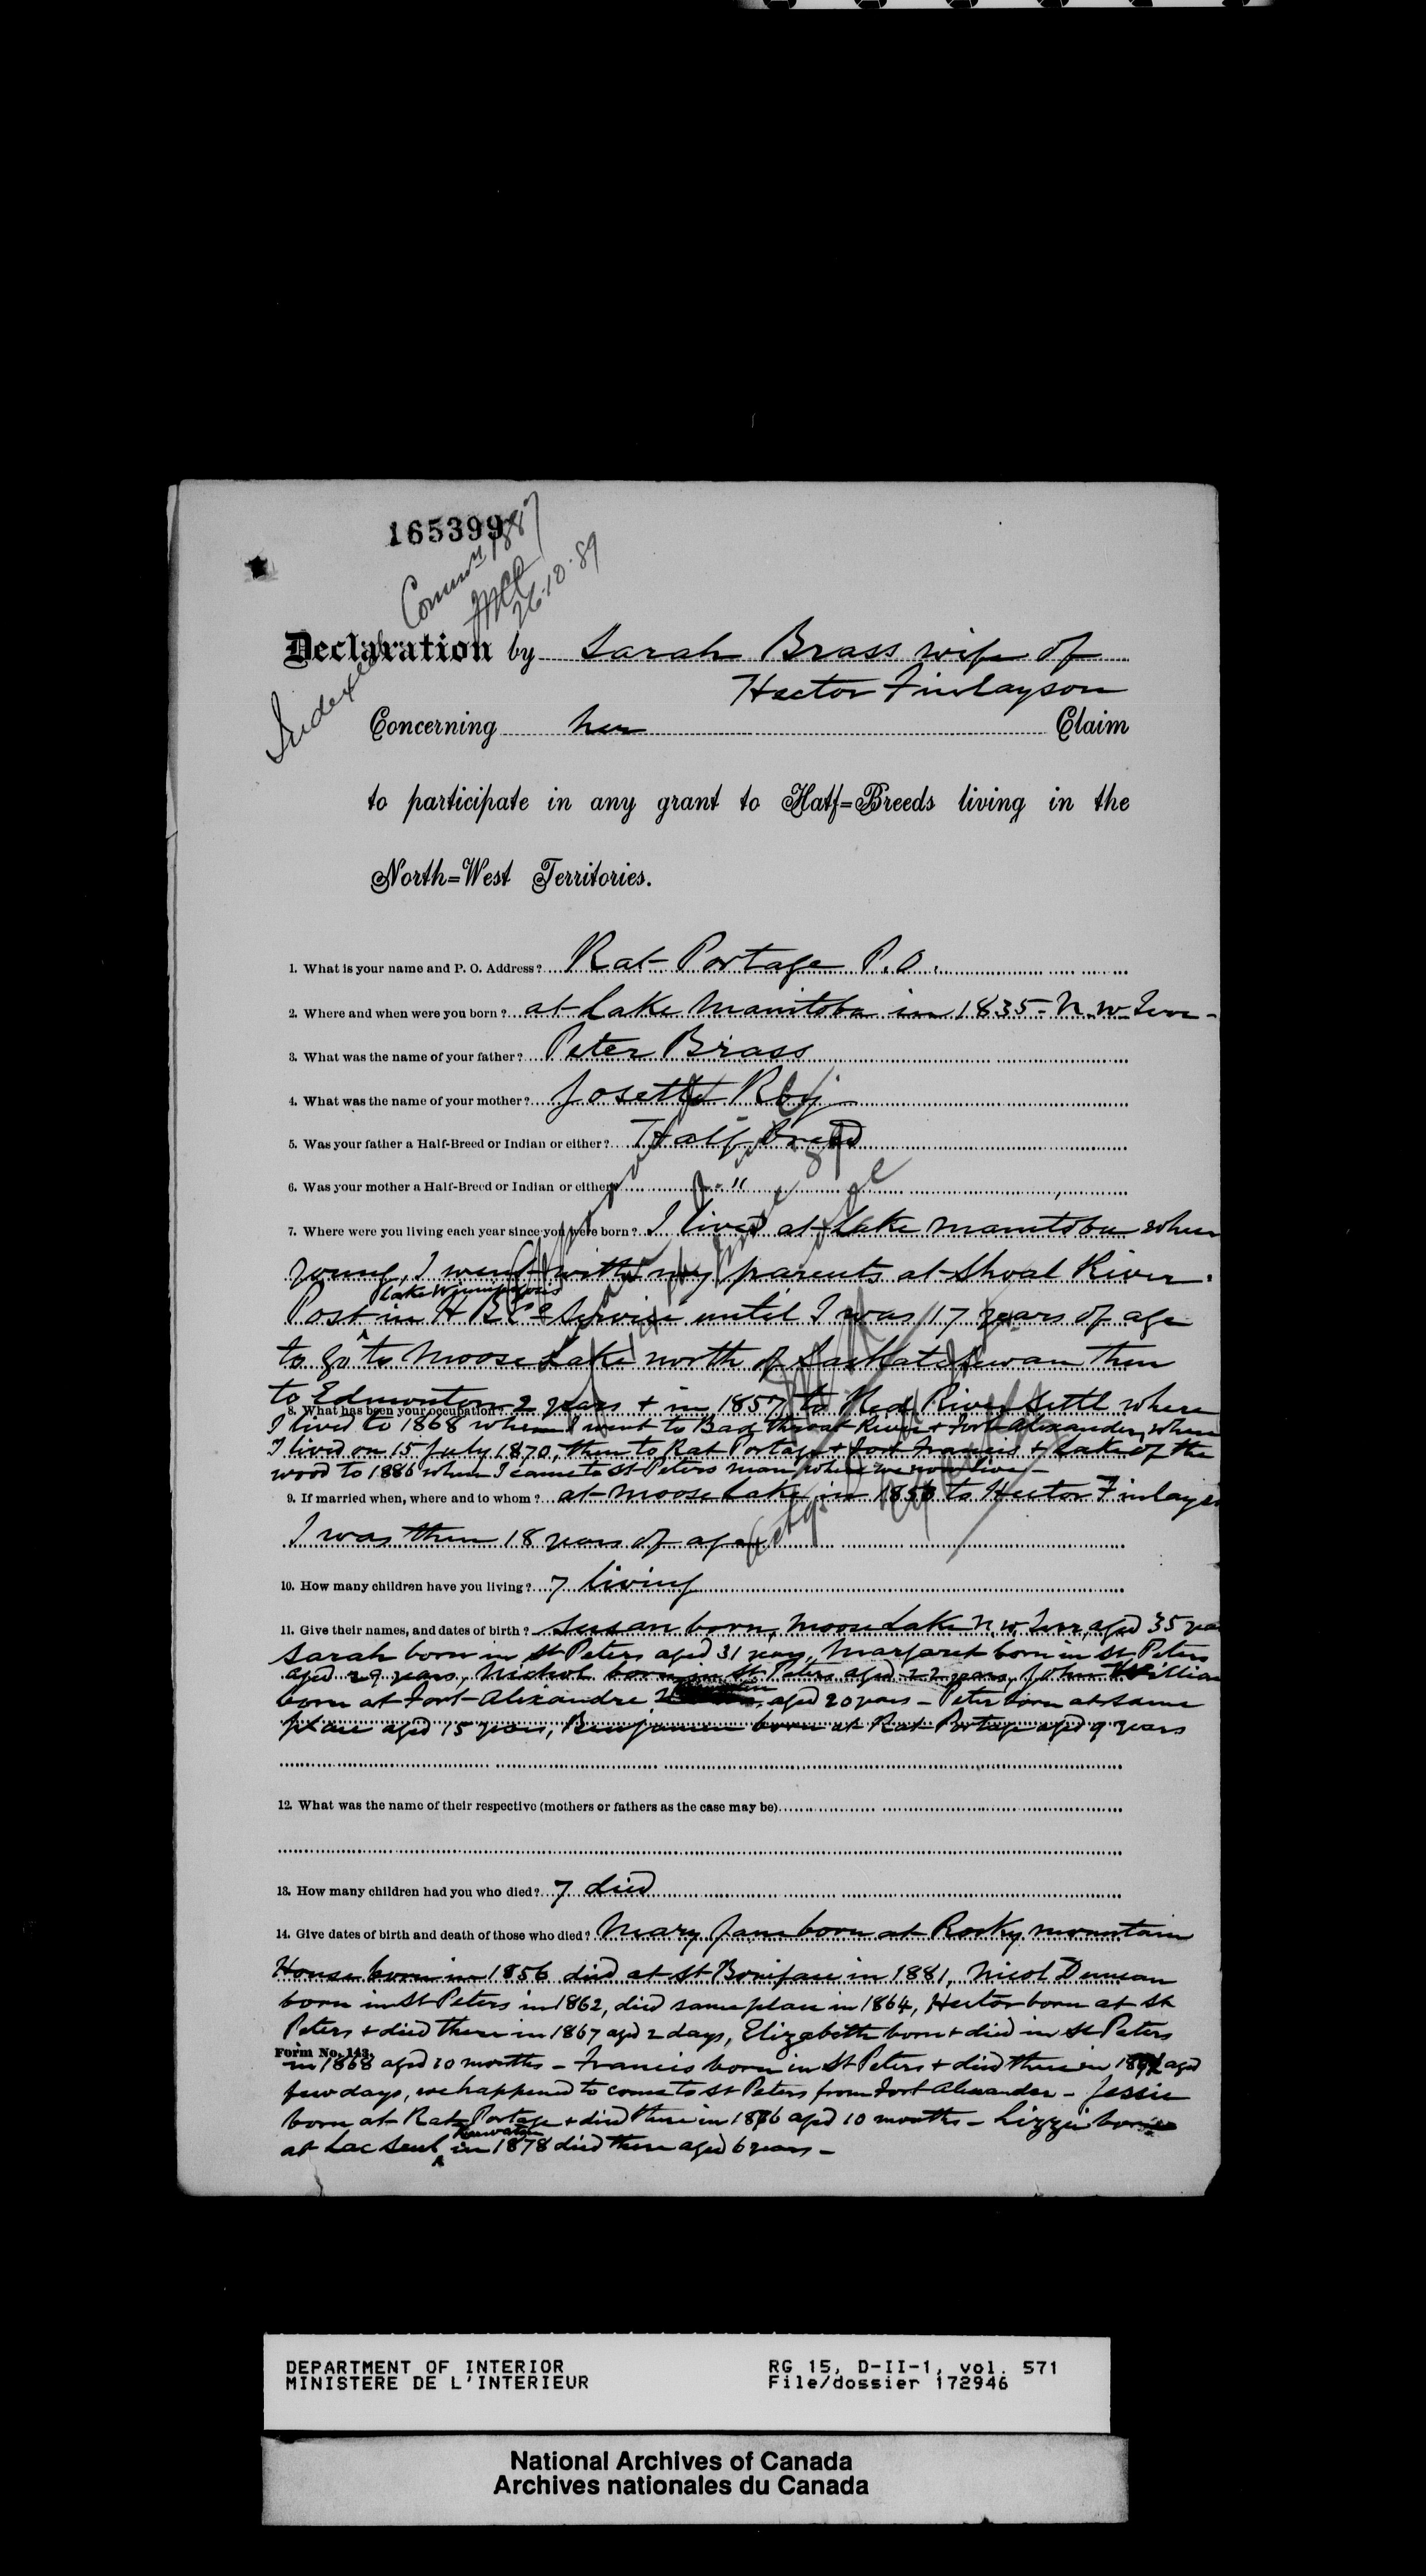 165399
Commrs 1887
26.10.89
Indexed
Declaration by Sarah Brass wife of
Hector Finlayson
Concerning her Claim
to participate in any grant to Half=Breeds living in the
North=West Territories.
1. What is your name and P. O. Address? Rat Portage P.O.
2. Where and when were you born? at Lake Manitoba in 1835 - N. W. Terr -
3. What was the name of your father? Peter Brass
4. What was the name of your mother? Josette Roy
5. Was your father a Half-Breed or Indian or either? Half breed
6. Was your mother a Half-Breed or Indian or either? "
7. Where were you living each year since you were born? I lived at Lake Manitoba when
young, I went with my parents at Shoal River
Lake Winnipegosis
Post in H B Co Service until I was 17 years of age
to go to Moose Lake north of Saskatchewan then
to Edmonton 2 years + in 1857 to Red River Settl where
8. What has been your occupation?
I lived to 1868 when I went to Bad throat River + Fort Alexander, where
I lived on 15 July 1870, then to Rat Portage + Fort Francis + Lake of the
wood to 1886 when I came to St Peters Man where we now live -
9. If married when, where and to whom? at Moose Lake in 1853 to Hector Finlayson
I was then 18 years of age
10. How many children have you living? 7 living
11. Give their names, and dates of birth? Susan born, Moose Lake N. W. Terr, aged 35 years
Sarah born in St Peters aged 31 years, Margaret born in St Peters
aged 29 years, Nichol born in St Peters aged 22 years, John William
born at Fort Alexandre aged 20 years - Peter born at same
place aged 15 years, Benjamin born at Rat Portage aged 9 years
12. What was the name of their respective (mothers or fathers as the case may be)
13. How many children had you who died? 7 died
14. Give dates of birth and death of those who died? Mary Jane born at Rocky Mountain
House born in 1856 died at St Boniface in 1881, Nicol Duncan
born in St Peters in 1862, died same place in 1864, Hector born at St
Peters + died there in 1867 aged 2 days, Elizabeth born + died in St Peters
Form No. 143.
in 1868 aged 10 months - Francis born in St Peters + died there in aged
few days, we happened to come to St Peters from Fort Alexander - Jessie
born at Rat Portage + died there in 1876 aged 10 months - Lizzie born
Keewatin
at Lac Seul in 1878 died there aged 6 years -
DEPARTMENT OF INTERIOR
MINISTERE DE L'INTERIEUR
RG 15, D-II-1, vol. 571
File/dossier 172946
National Archives of Canada
Archives nationales du Canada